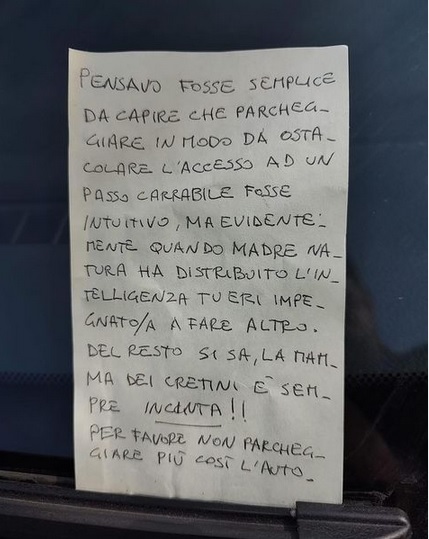 PENSAVO FOSSE SEMPLICE
DA CAPIRE CHE PARCHEG-
GIARE IN MODO DA OSTA-
COLARE L'ACCESSO AD UN
PASSO CARRABILE FOSSE
INTUITIVO, MA EVIDENTE-
MENTE QUANDO MADRE NA-
TURA HA DISTRIBUITO L'IN-
TELLIGENZA TU ERI IMPE-
GNATO/A A FARE ALTRO.
DEL RESTO SI SA, LA MAM-
MA DEI CRETINI E' SEM-
PRE INCINTA!!
PER FAVORE NON PARCHEG-
GIARE PIÙ COSÌ L'AUTO.